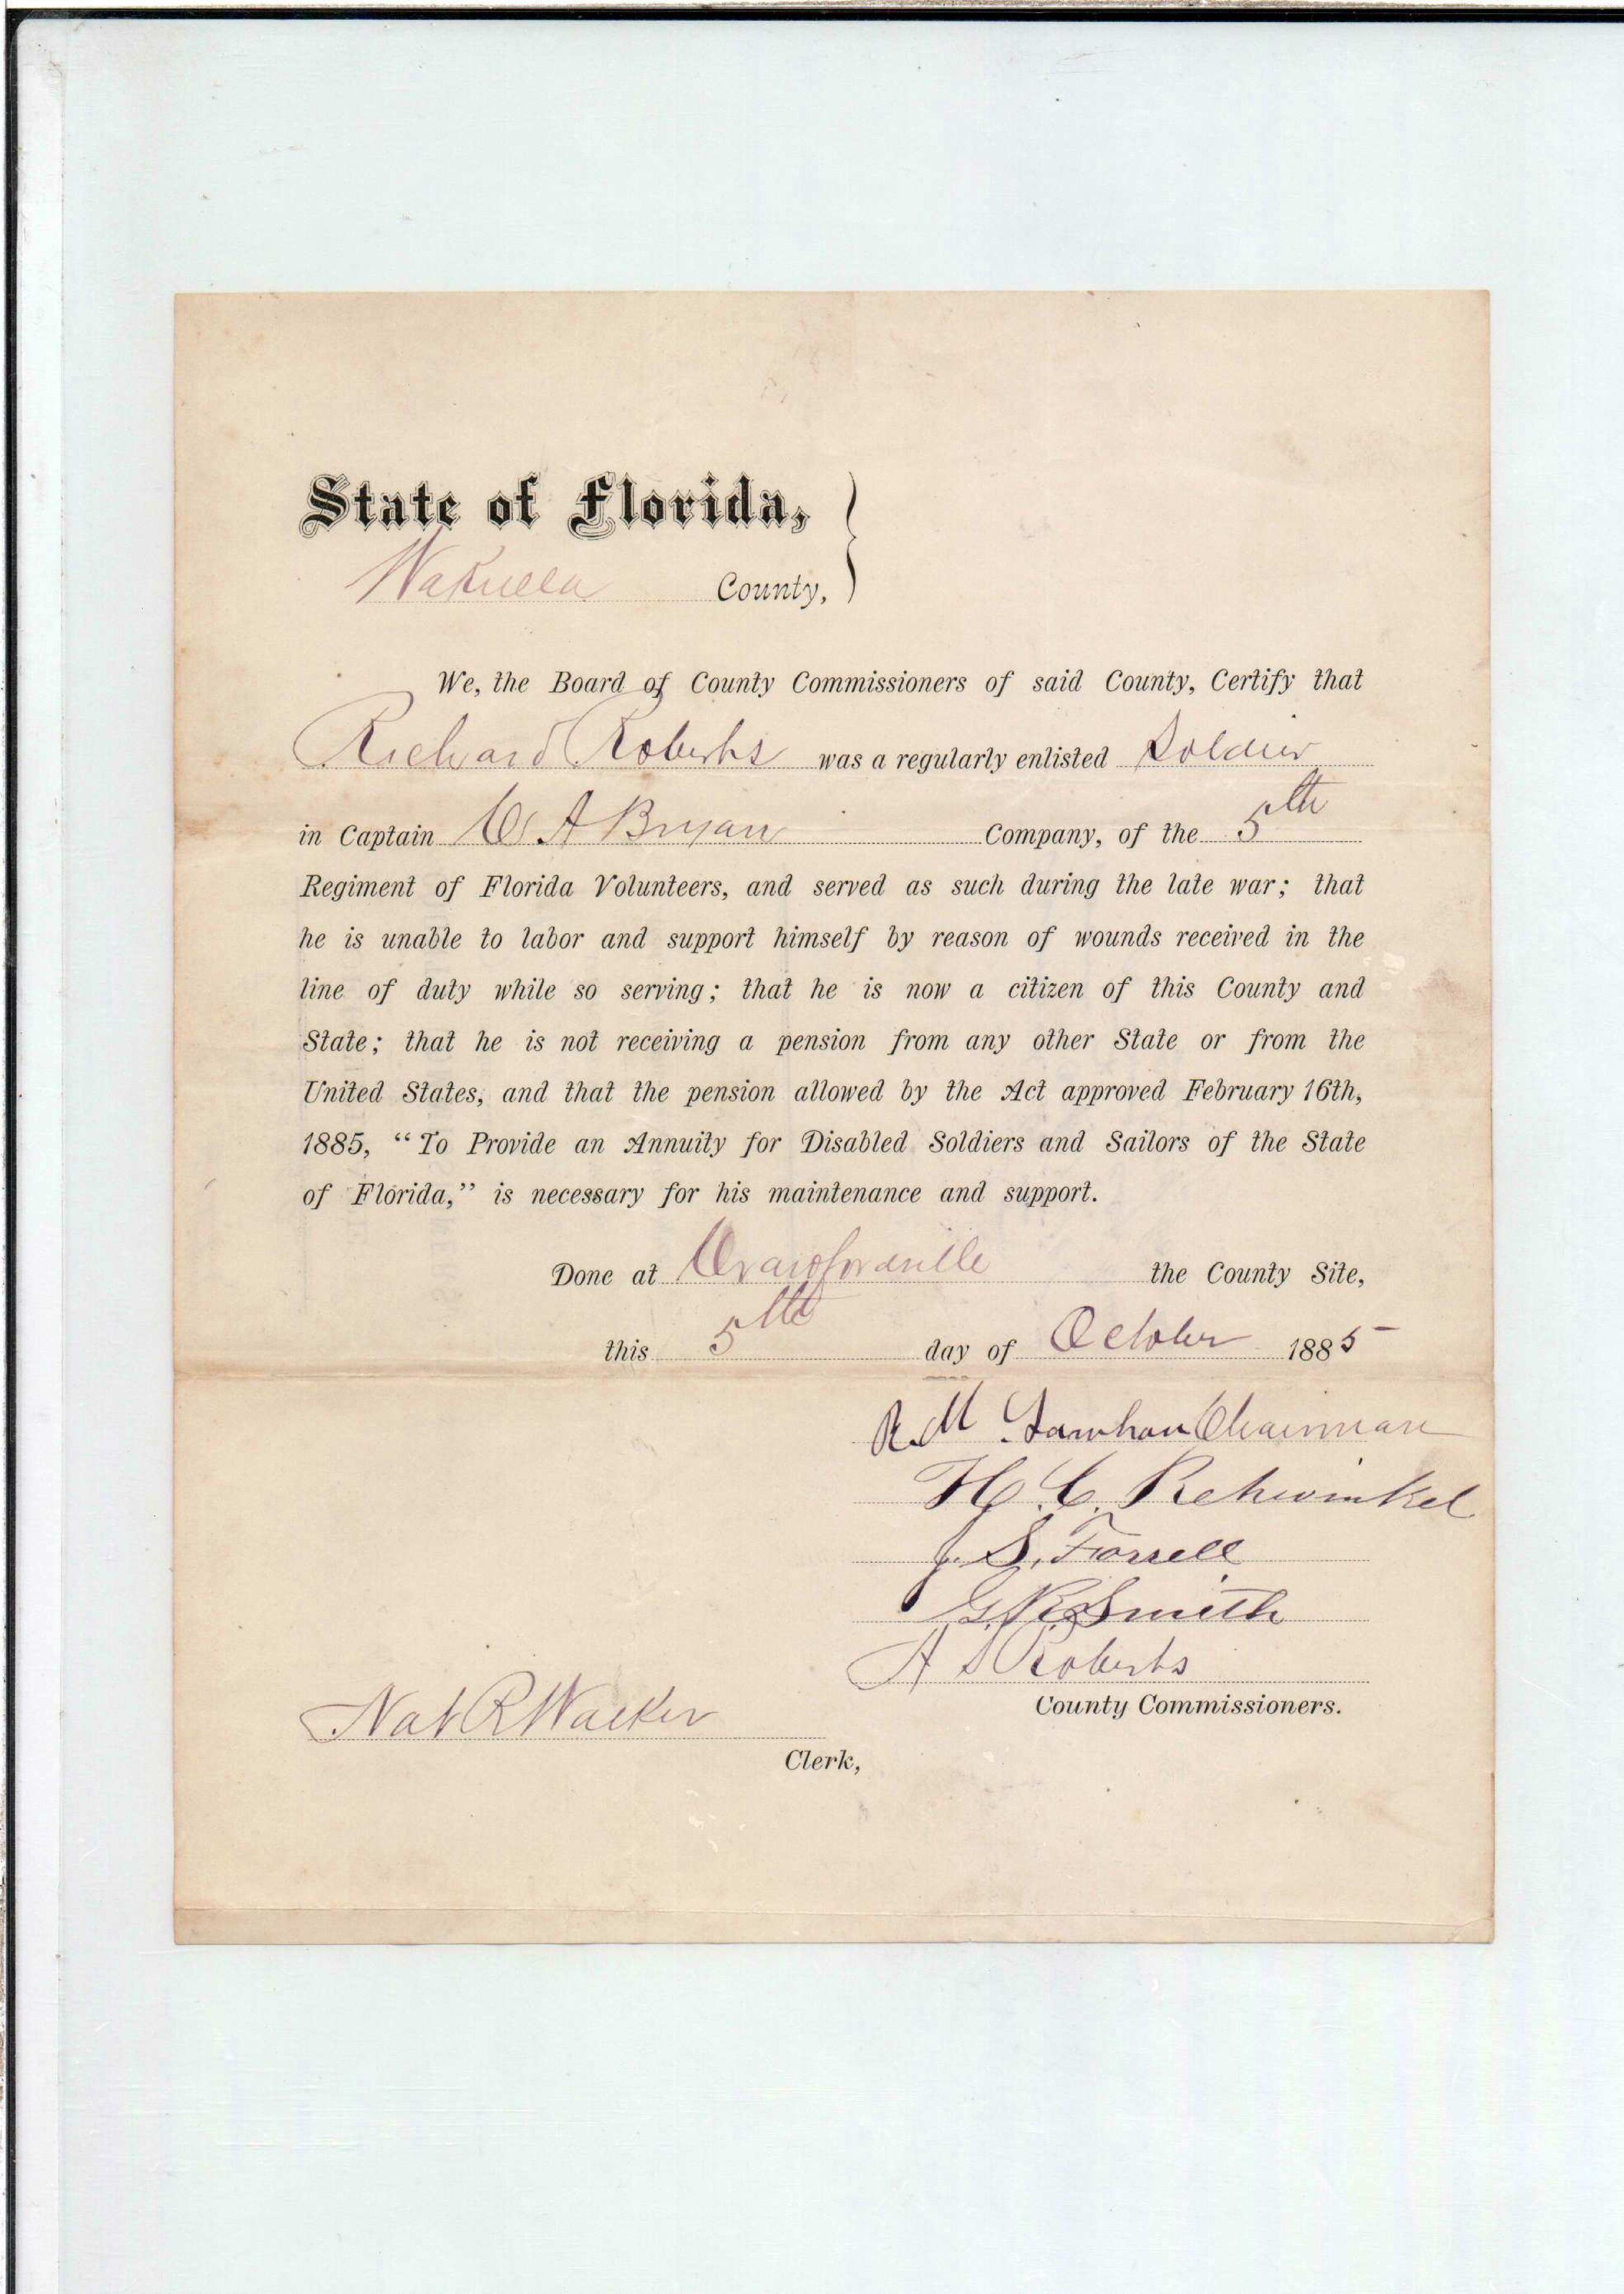 State of Florida,
Wakulla County,
We, the Board of County Commissioners of said County, Certify that
Richard Roberts was a regularly enlisted Soldier
in Captain C A Bryan Company, of the 5th
Regiment of Florida Volunteers, and served as such during the late war; that
he is unable to labor and support himself by reason of wounds received in the
line of duty while so serving; that he is now a citizen of this County and
State; that he is not receiving a pension from any other State or from the
United States, and that the pension allowed by the Act approved February 16th,
1885, "To Provide an Annuity for Disabled Soldiers and Sailors of the State
of Florida," is necessary for his maintenance and support.
Done at Crawfordville the County Site,
this 5th day of October 1885
R. M. Chairman
H. C. Rehwinkel
J. S. Farrell
G. R. Smith
A S Roberts
County Commissioners.
Nat R Walker
Clerk,